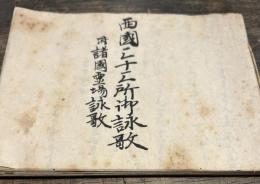 西國三十三所御詠歌
附諸國霊場詠歌